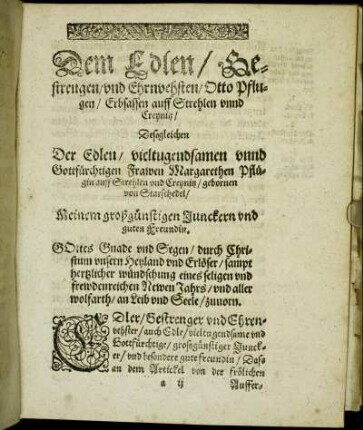 Dem Edlen / Ge-
strengen / vnd Ehrnvehsten / Otto Pflu-
gen / Erbsassen auff Strehlen vnnd
Creynitz /
Desgleichen
Der Edlen / vieltugendsamen vnnd
Gottfürchtigen Frawen Margarethen Pflü-
gin auff Strehlen vnd Creynitz / gebornen
von Starschedel /
Meinem großgünstigen Junckern vnd
guten Freundin.
GOttes Gnade vnd Segen / durch Chri-
stum vnsern Heyland vnd Erlöser / sampt
hertzlicher wündschung eines seligen vnd
frewdenreichen Newen Jahrs / vnd aller
wolfarth / an Leib vnd Seele / zuuorn.
EDler / Gestrenger vnd Ehren-
vehster / auch Edle / vieltugendsame vnd
Gottfürchtige / grosgünstiger Junck-
er / vnd besondere gute freundin / Dass
an dem Artickel von der frölichen
a ij Auffer-